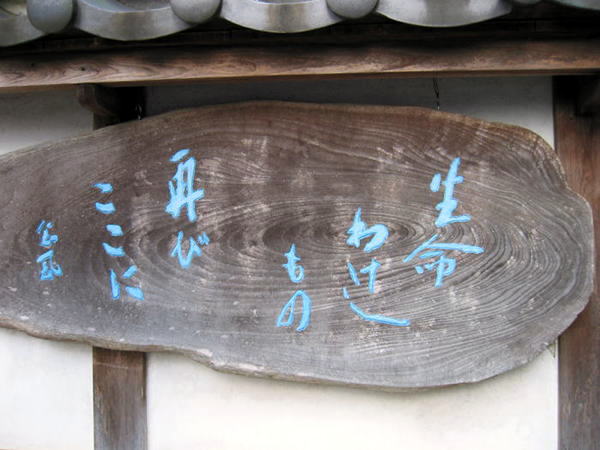 生命
わけし
もの
再び
ここに